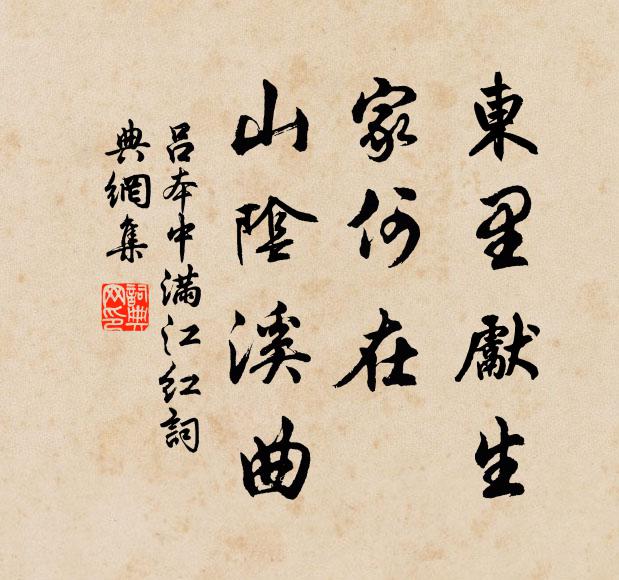 東里獻生
家何在
山陰溪曲
呂本中滿江紅詞
典網集
詞典網印